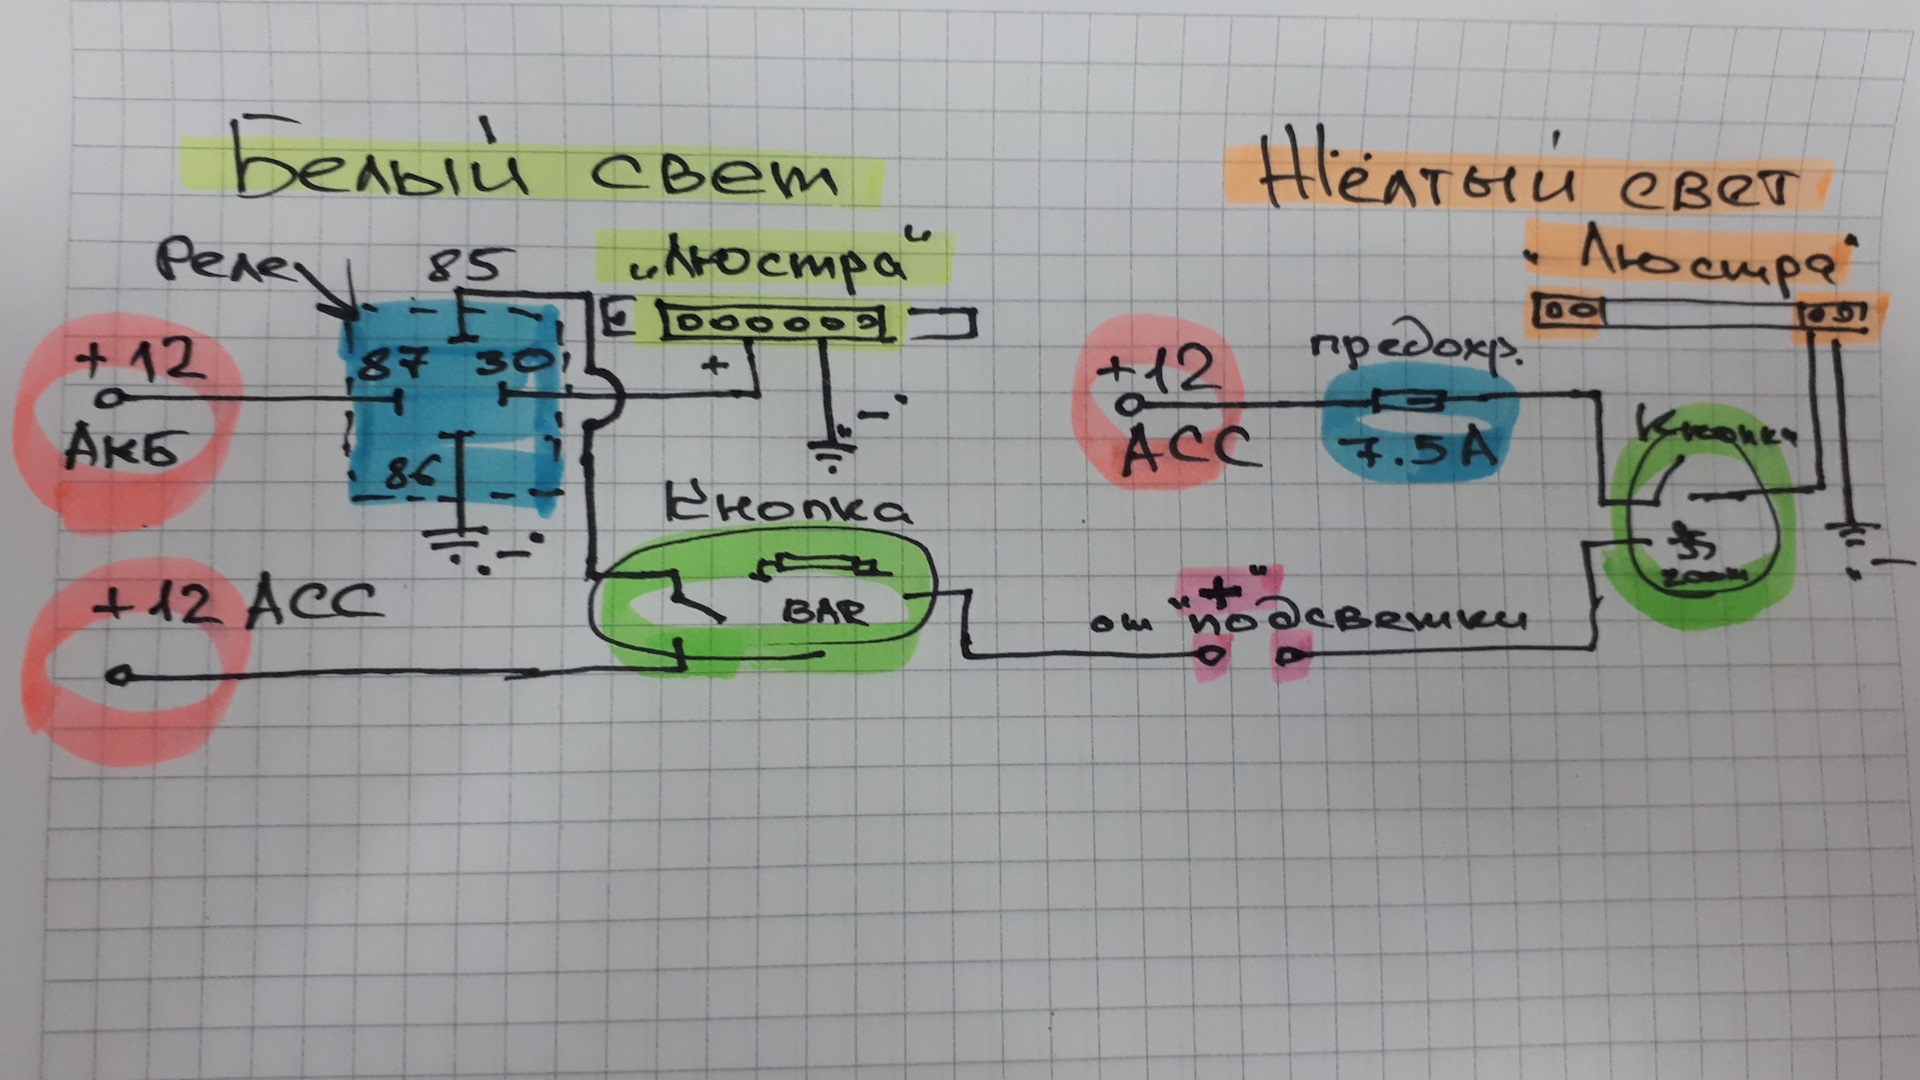 Белый свет
Реле
85
„Люстра“
+12
АКБ
87
30
86
+
"-"
Кнопка
BAR
+12 ACC
Жёлтый свет
"Люстра"
+12
ACC
предохр.
7.5A
Кнопка
"-"
от "+" подсветки